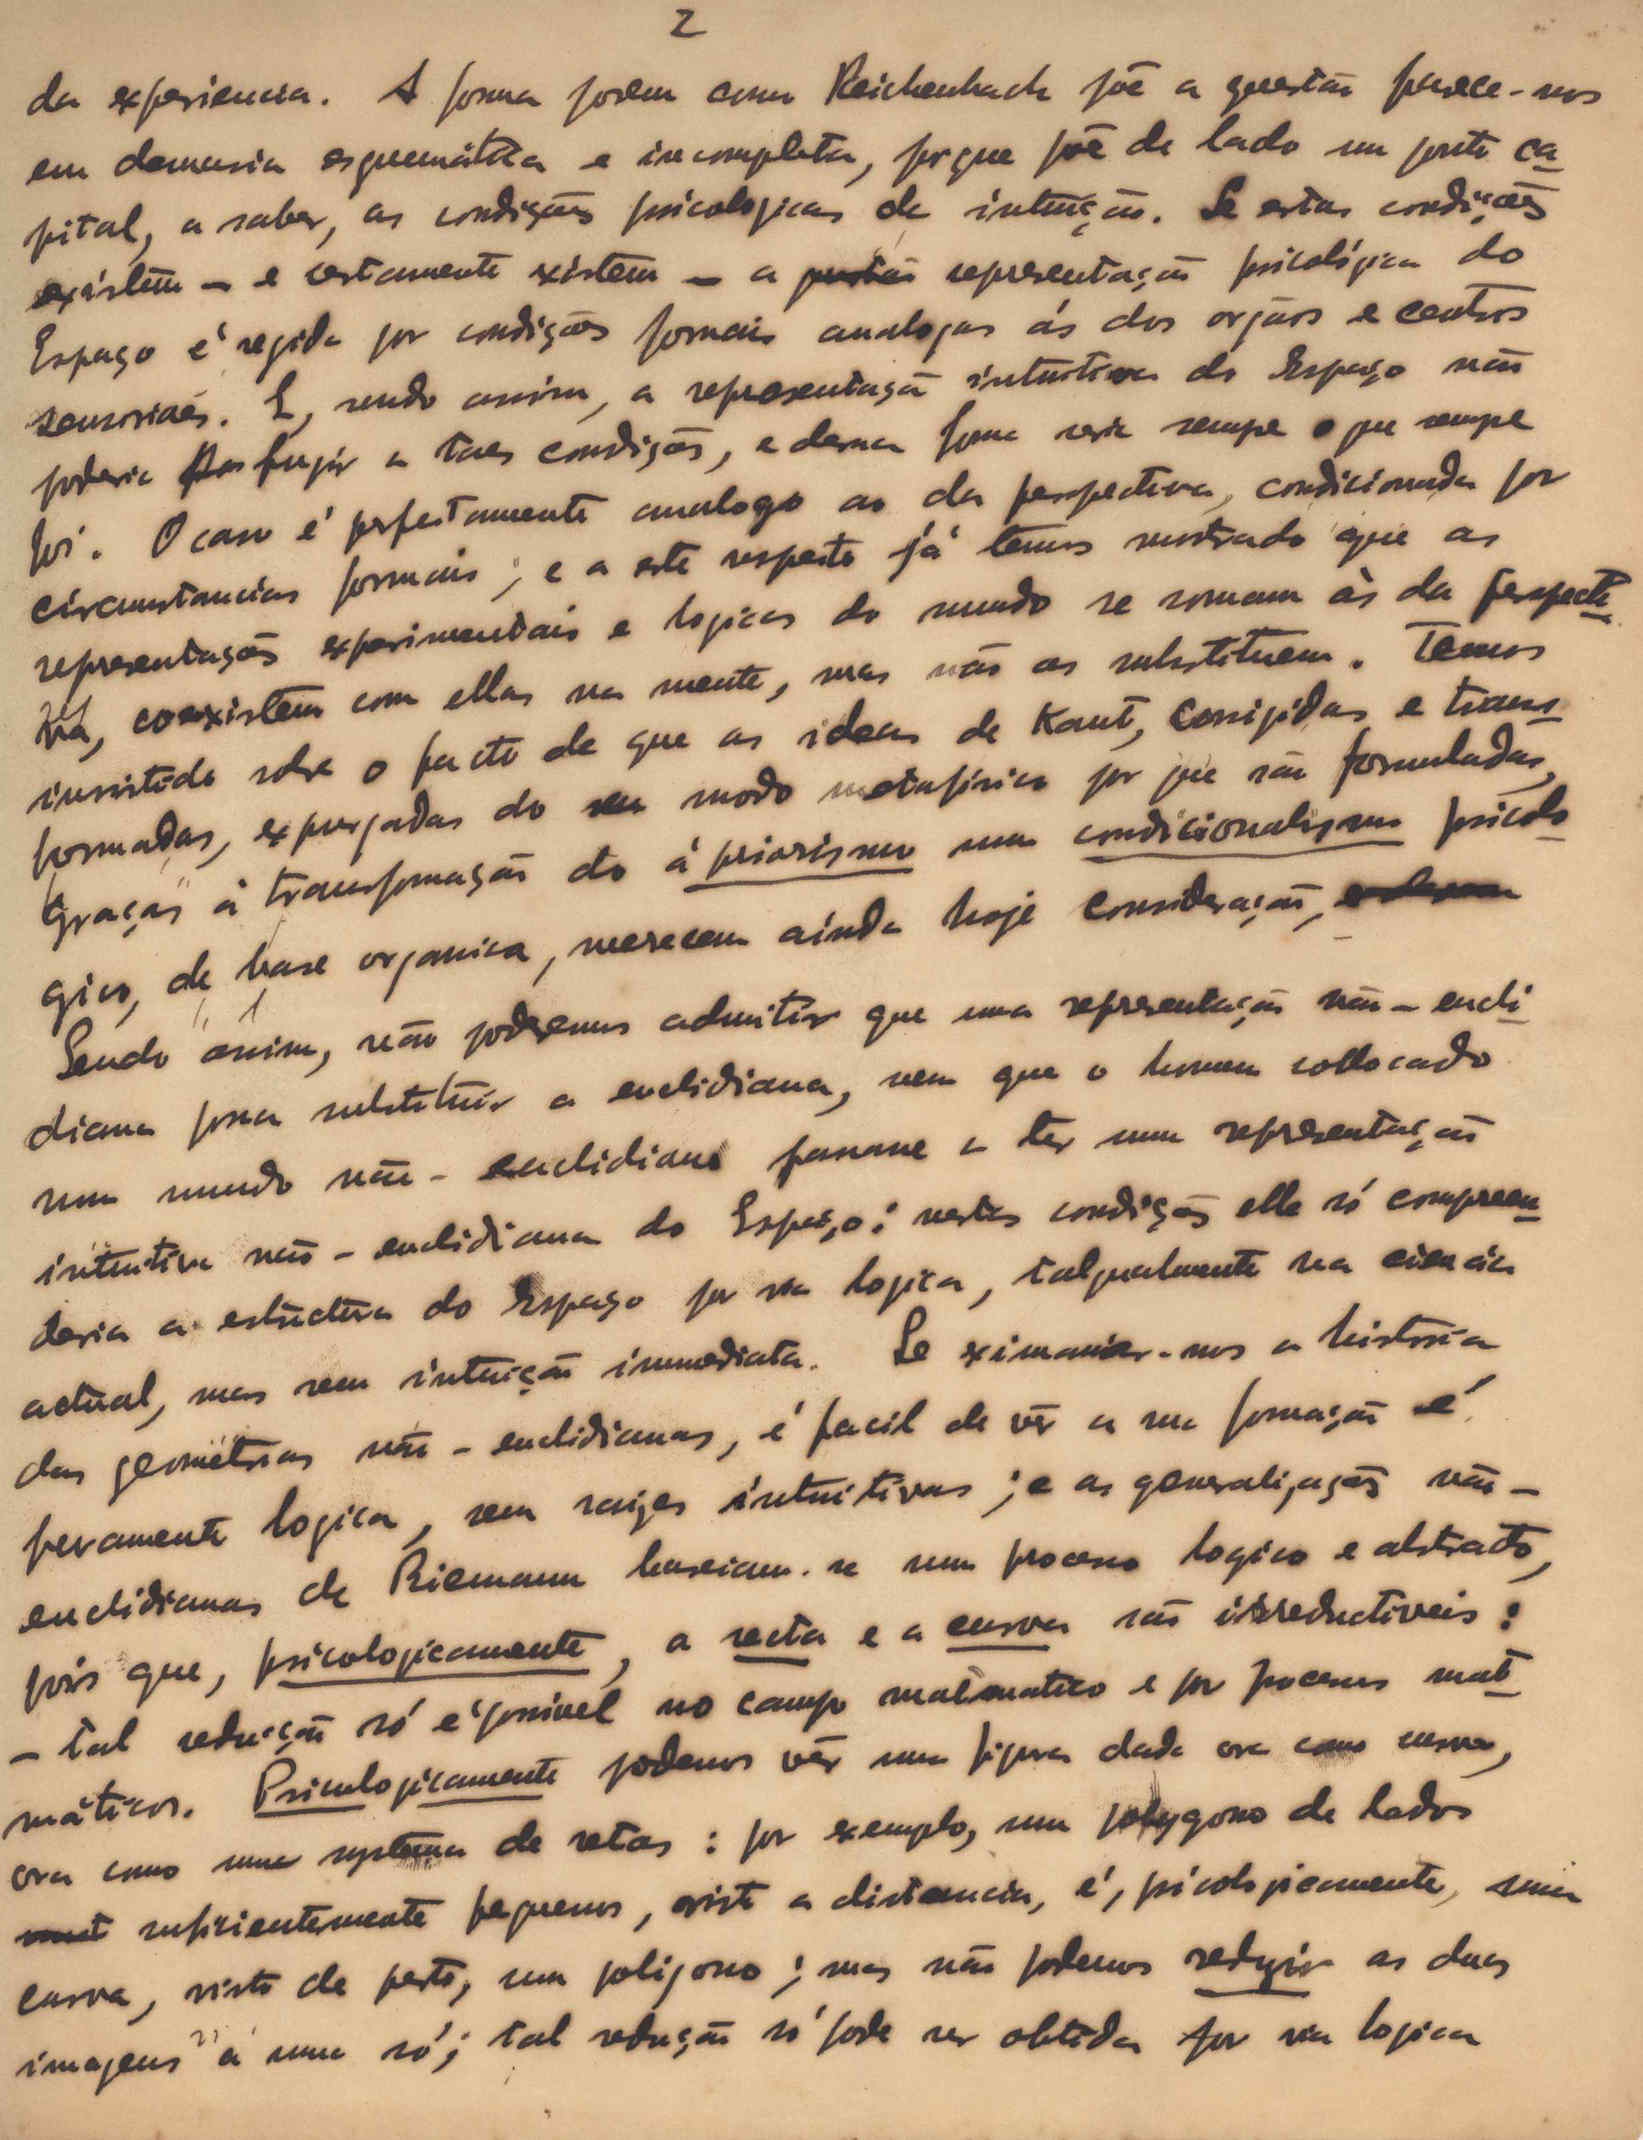 2
da experiencia. A forma porem como Reichenbach põe a questão parece-nos
em demasia esquemática e incompleta, porque põe de lado um ponto ca-
pital, a saber, as condições psicologicas da intuição. Se estas condições
existem – e certamente existem – a representação psicológica do
Espaço é regida por condições formais analogas ás dos orgãos e centros
sensoriaes. E, sendo assim, a representação intuitiva do Espaço não
poderia fugir a taes condições, e dessa forma seria sempre o que sempre
foi. O caso é perfeitamente analogo ao da perspectiva, condicionada por
circumstancias formais; e a este respeito já temos mostrado que as
representações experimentais e logicas do mundo se somam às da perspecti-
va, coexistem com ellas na mente, mas não as substituem. Temos
insistido sobre o facto de que as ideas de Kant, corrigidas e trans-
formadas, expurgadas do seu modo metafisico por que são formuladas,
graças à transformação do á priorismo num condicionalismo psicolo-
gico, de base organica, merecem ainda hoje consideração,
Sendo assim, não podemos admitir que uma representação não-eucli-
diana possa substituir a euclidiana, nem que o homem collocado
num mundo não-euclidiano passasse a ter uma representação
intuitiva não-euclidiana do Espaço: nestas condições elle só compreen-
deria a estructura do Espaço por via logica, talqualmente na ciencia
actual, mas sem intuição immediata. Se -nos a historia
das geometrias não-euclidianas, é facil de vêr a sua formação é
puramente logica, sem raizes intuitivas; e as generalizações não-
euclidianas de Riemann baseiam-se num processo logico e abstracto,
pois que, psicologicamente, a recta e a curva são irreductiveis:
– tal redução só é possivel no campo matematico e por processos mate-
máticos. Psicologicamente podemos vêr uma figura dada ora como curva,
ora como um systema de retas: por exemplo, um polygono de lados
suficientemente pequenos, visto a distancia, é, psicologicamente, uma
curva, visto de perto, um poligono; mas não podemos reduzir as duas
imagens a uma só; tal redução só pode ser obtida por via logica